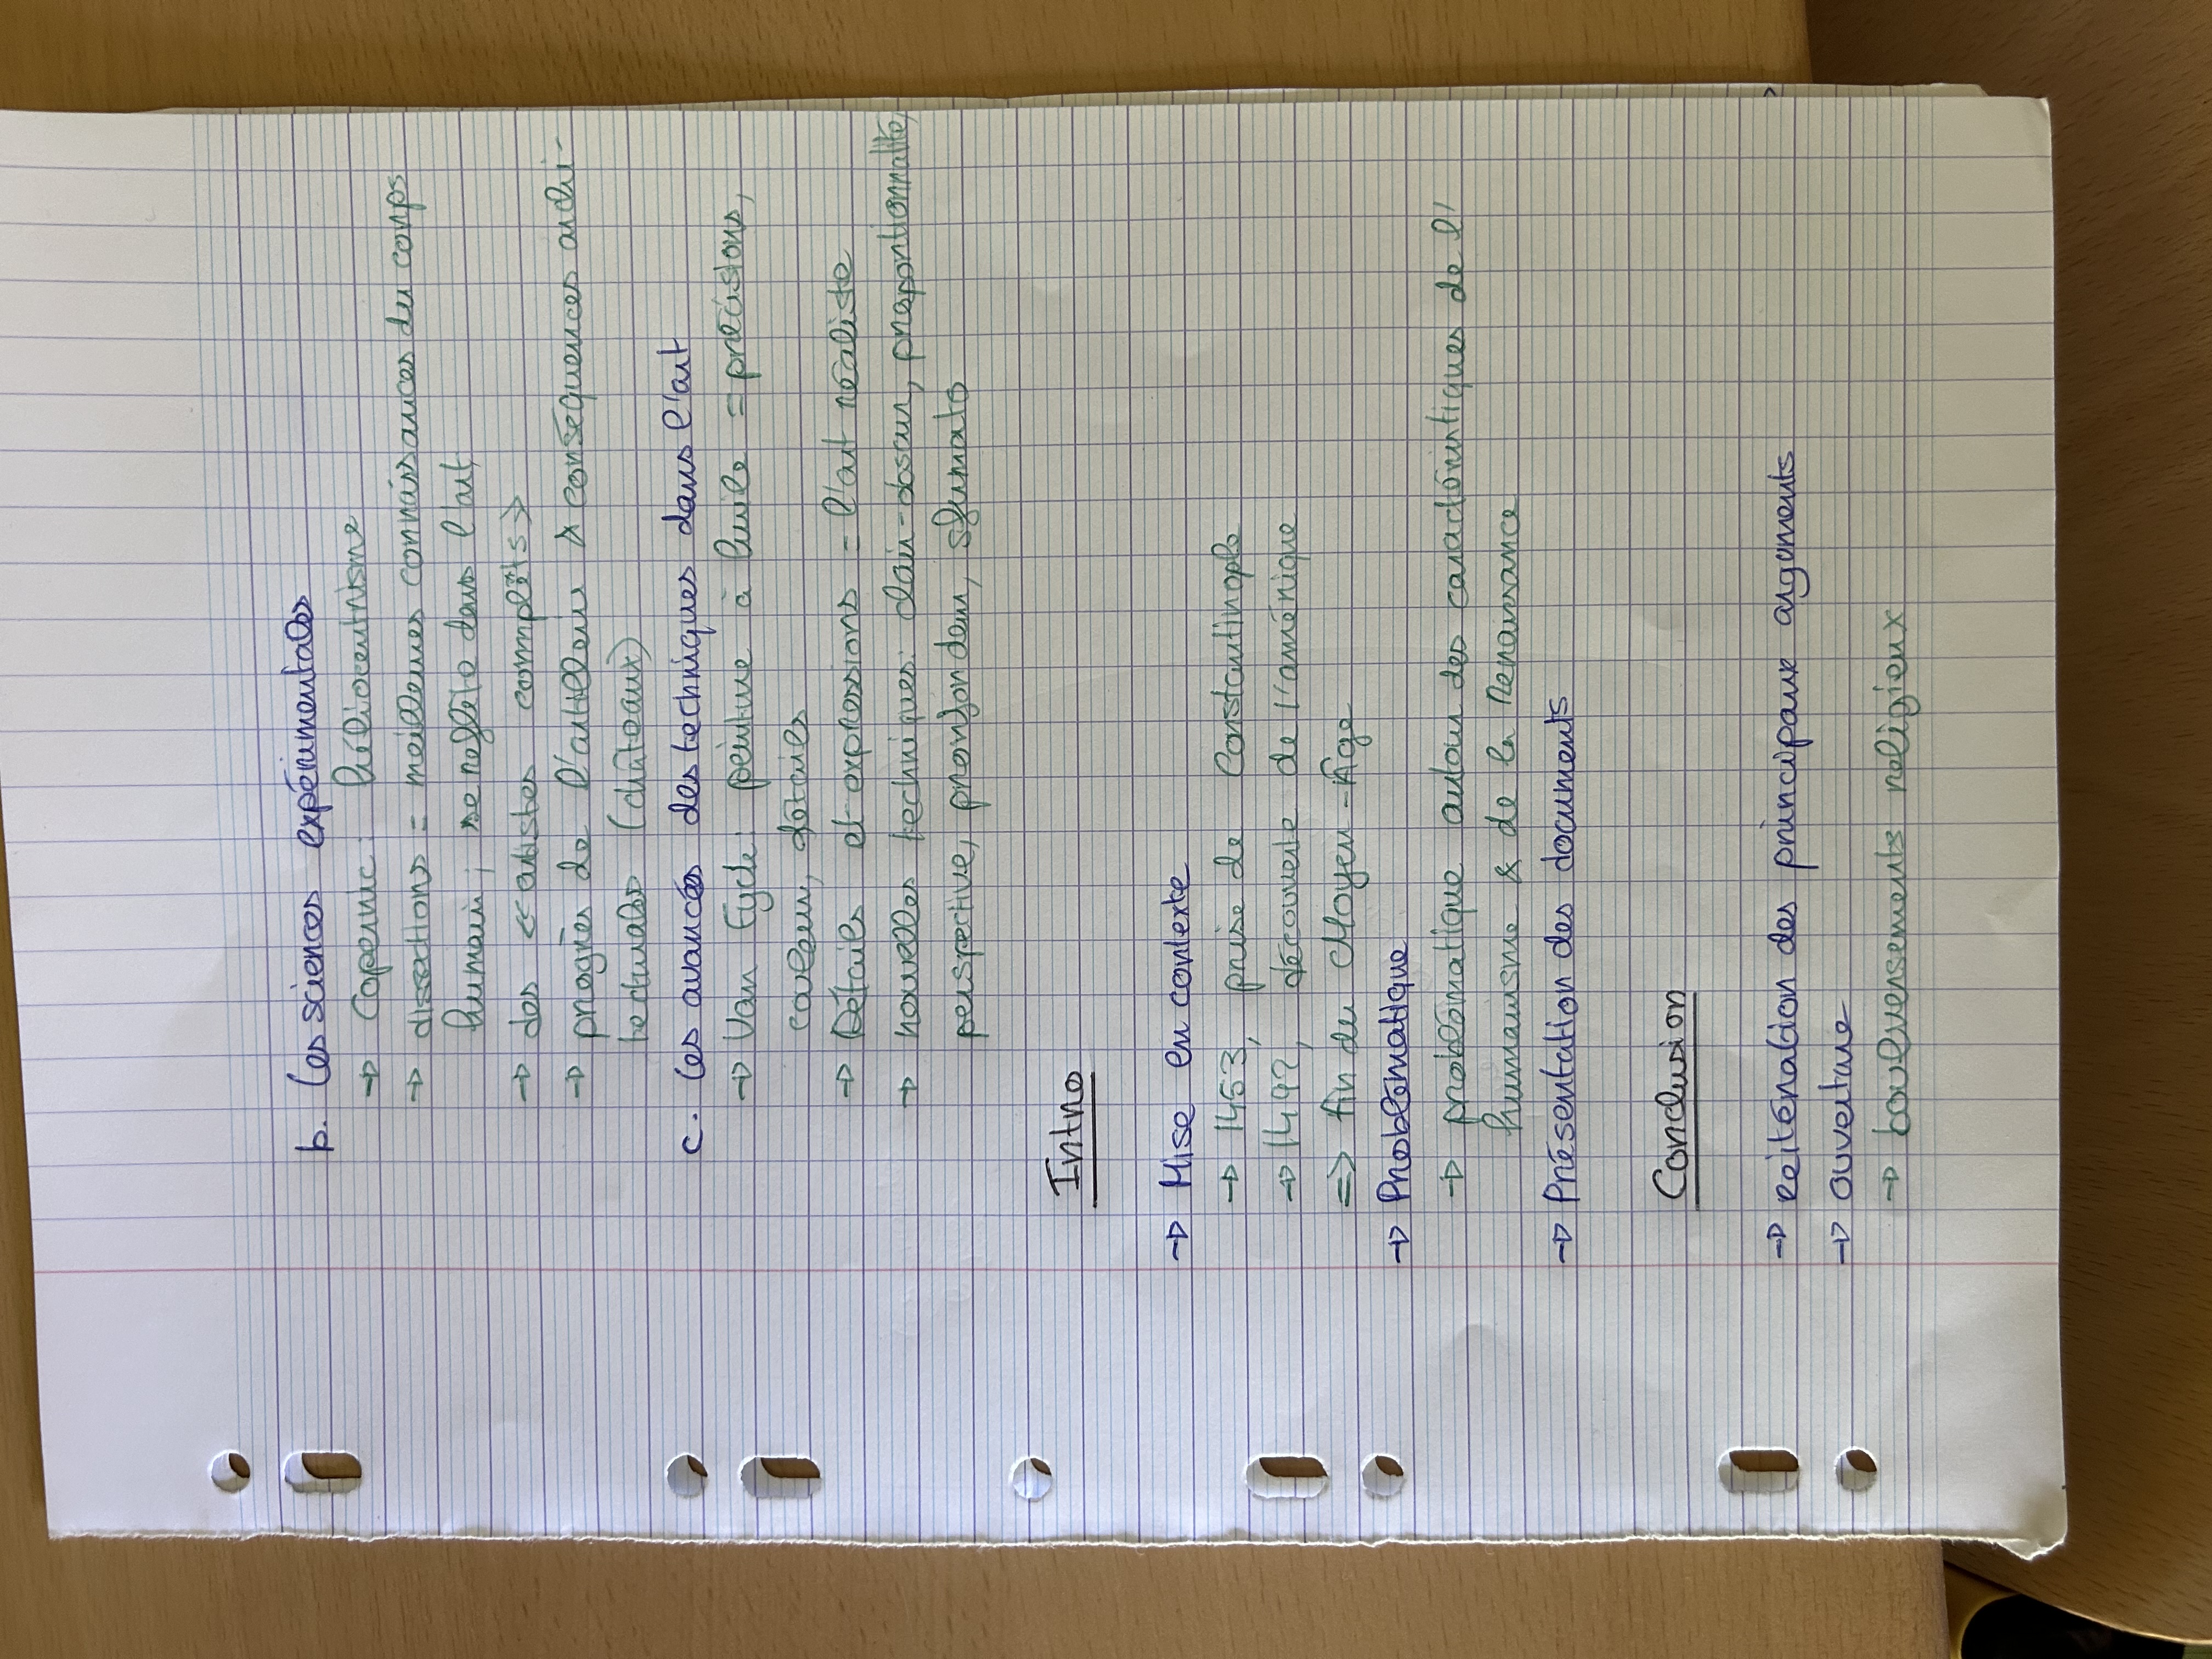 b. Les sciences expérimentales
→ Copernic : héliocentrisme
→ dissections = meilleures connaissances du corps
humain ; se reflète dans l'art
→ des << artistes complets >>
→ progrès de l'artillerie & conséquences archi-
tecturales (châteaux)
c. Les avancées des techniques dans l'art
→ Van Eyck : peinture à huile = précisions,
couleurs, détails
→ Détails et expressions = l'art réaliste
→ nouvelles techniques : clair-obscur, proportionnalité,
perspective, profondeur, sfumato
Intro
→ Mise en contexte
→ 1453, prise de Constantinople
→ 1492, découverte de l'amérique
=> fin du Moyen-Âge
→ Problématique
→ problématique autour des caractéristiques de l'
humanisme & de la Renaissance
→ Présentation des documents
Conclusion
→ réitération des principaux arguments
→ ouverture
→ bouleversements religieux